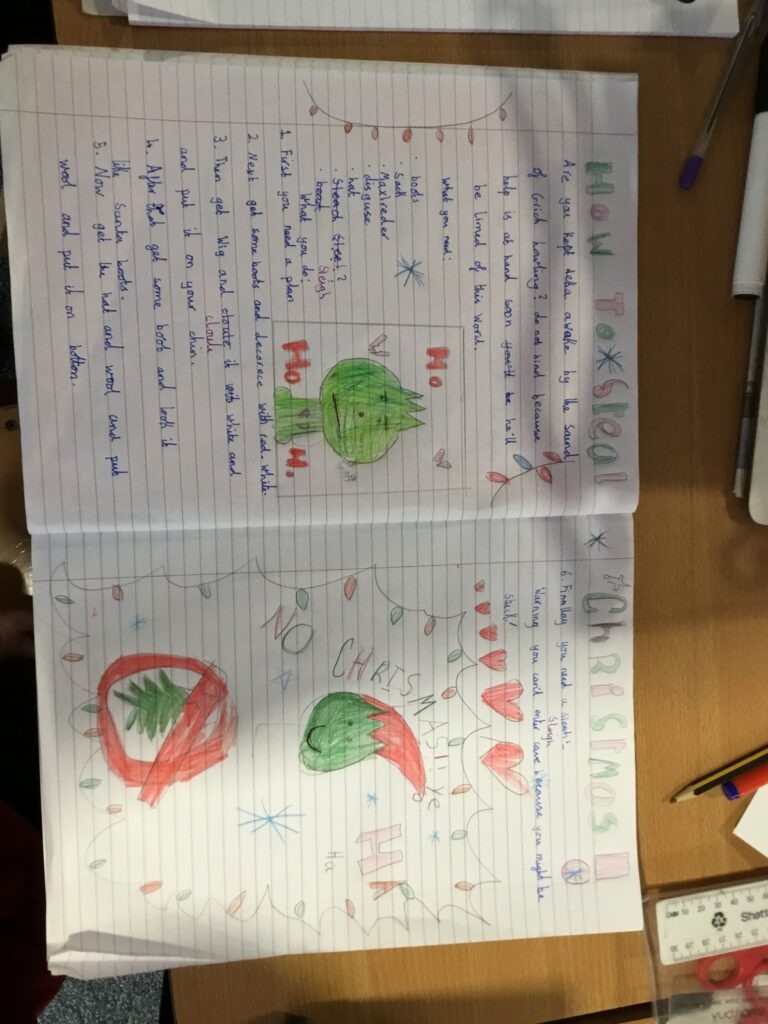 How To Steal Christmas!
Are you kept awake by the Sound
of Grich howling? do not kind because
help is at hand soon you'll be he'll
be limed of this word.
what you need:
• boots
• Sack
• Max/reder
• disguse
• hat
• Steach Steet?
Sleigh
• beard
What you do:
1. First you need a plan
2. Next get some boots and decorece with red. white.
3. Then get Wig and it with white and
cloule
and put it on your chin.
4. After that get some boot and look it
like Santa boots.
5. Now get the hat and wool and put
wool and put it on bottom.
Ho
Ho
H.
6. Finallay you need a sleah!
Sleigh
Warning you can't enter cave because you might be
stuck!
NO CHRISMAS!!
ye
HA
Ha
Shatt